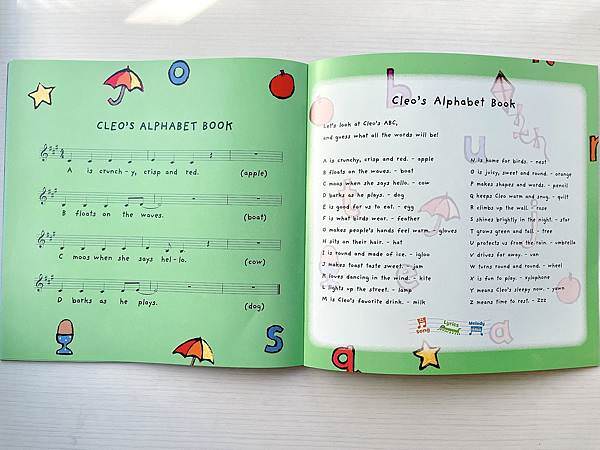 CLEO'S ALPHABET BOOK
A is crunch - y, crisp and red. (apple)
B floats on the waves. (boat)
C moos when she says hel - lo. (cow)
D barks as he plays. (dog)
o
s
a
Cleo's Alphabet Book
Let's look at Cleo's ABC,
and guess what all the words will be!
A is crunchy, crisp and red. - apple
B floats on the waves. - boat
C moos when she says hello. - cow
D barks as he plays. - dog
E is good for us to eat. - egg
F is what birds wear. - feather
G makes people's hands feel warm. - gloves
H sits on their hair. - hat
I is round and made of ice. - igloo
J makes toast taste sweet. - jam
K loves dancing in the wind. - kite
L lights up the street. - lamp
M is Cleo's favorite drink. - milk
N is home for birds. - nest
O is juicy, sweet and round. - orange
P makes shapes and words. - pencil
Q keeps Cleo warm and snug. - quilt
R climbs up the wall. - rose
S shines brightly in the night. - star
T grows green and tall. - tree
U protects us from the rain. - umbrella
V drives far away. - van
W turns round and round. - wheel
X is fun to play. - xylophone
Y means Cleo's sleepy now. - yawn
Z means time to rest. - zzz
Song Lyrics Melody
b
u
r
a